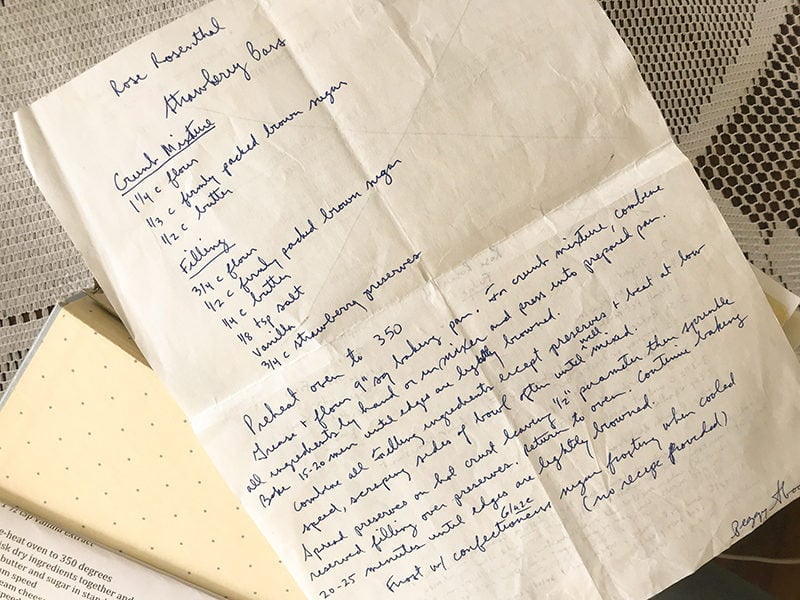 Rose Rosenthal
Strawberry Bars
Crumb Mixture
1 1/4 c flour
1/3 c firmly packed brown sugar
1/2 c butter
Filling
3/4 c flour
1/2 c firmly packed brown sugar
1/4 c butter
1/8 tsp salt
vanilla
3/4 c strawberry preserves
Preheat oven to 350
Grease + flour 9" sq baking pan. For crumb mixture, combine
all ingredients by hand or in mixer and press into prepared pan.
Bake 15-20 min until edges are lightly browned.
Combine all filling ingredients except preserves + beat at low
speed, scraping sides of bowl often until well mixed.
Spread preserves on hot crust leaving 1/2" perameter then sprinkle
reserved filling over preserves. Return to oven. Continue baking
20-25 minutes until edges are lightly browned.
Glaze
Frost w/ confectioners sugar frosting when cooled
(no recipe provided)
Peggy
vanilla extract
e-heat oven to 350 degrees
isk dry ingredients together and
butter and sugar in stand
um speed
eam cheese